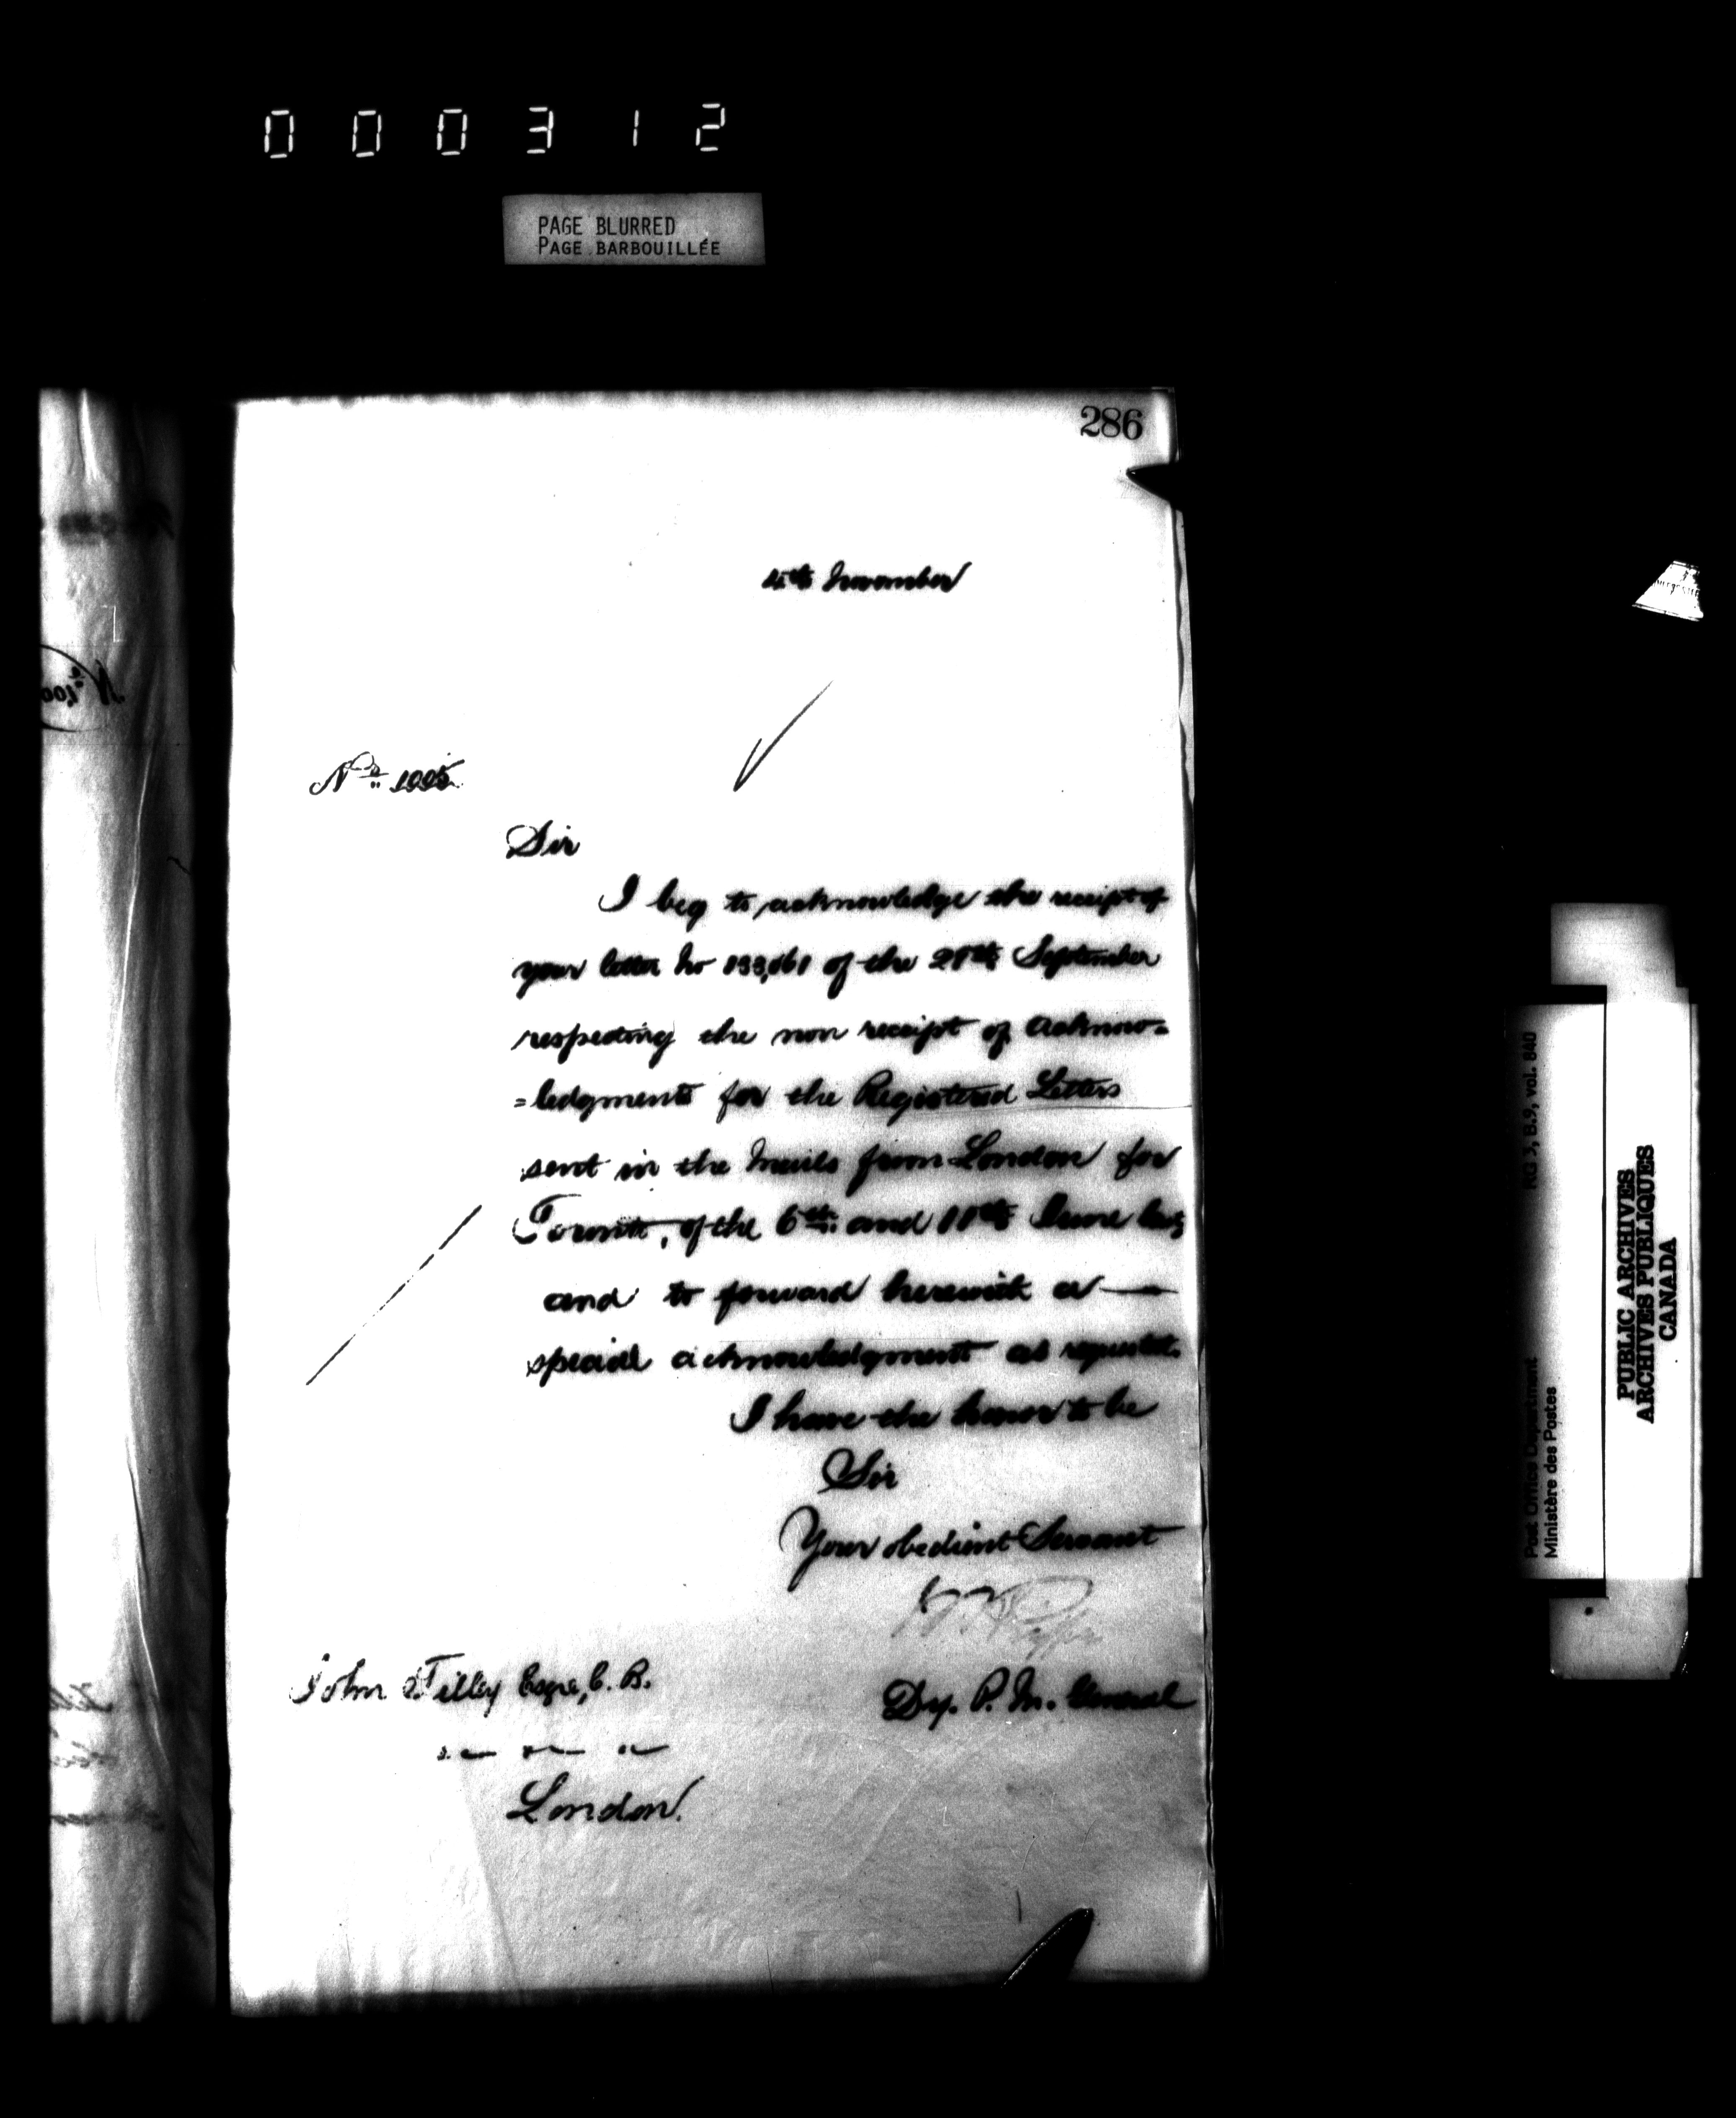 000312
PAGE BLURRED
PAGE BARBOUILLÉE
286
4th November
No 1005
Sir
I beg to acknowledge the receipt of
your letter No 133,161 of the 21st September
respecting the non receipt of acknow=
=ledgments for the Registered Letters
sent in the Mails from London for
Toronto, of the 6th. and 11th June last
and to forward herewith a —
special acknowledgment as requested.
I have the honor to be
Sir
Your obedient Servant
Dy. P. M. General
John Tilley Esqre, C. B.
London.
RG 3, B.9, vol. 840
Post Office Department
Ministère des Postes
PUBLIC ARCHIVES
ARCHIVES PUBLIQUES
CANADA